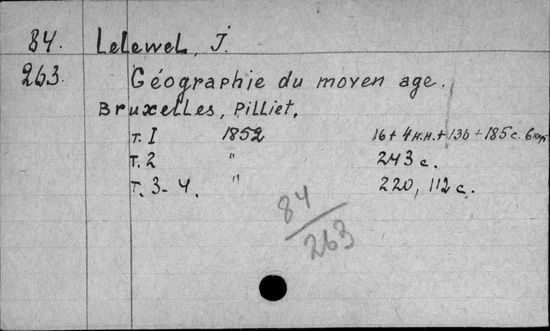 84. Lelewel, J.
263. Géographie du moyen age.
Bruxelles, Pilliet,
т. I 1852 16 + 4 н.н. + 136 + 185 с.
т. 2 " 243 с.
т. 3-4. " 220, 112 с.
84/263